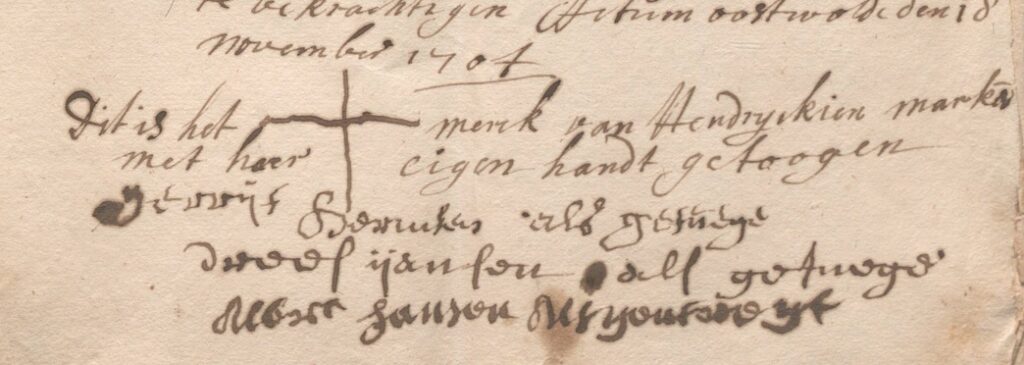 te bekrachtigen Actum oostwolde den 18
november 1704
Dit is het merck van Hendryckien marken
met haer eigen handt getoogen
gerrijt als getuege
dreef ijansen als getuege
Albert Jansen